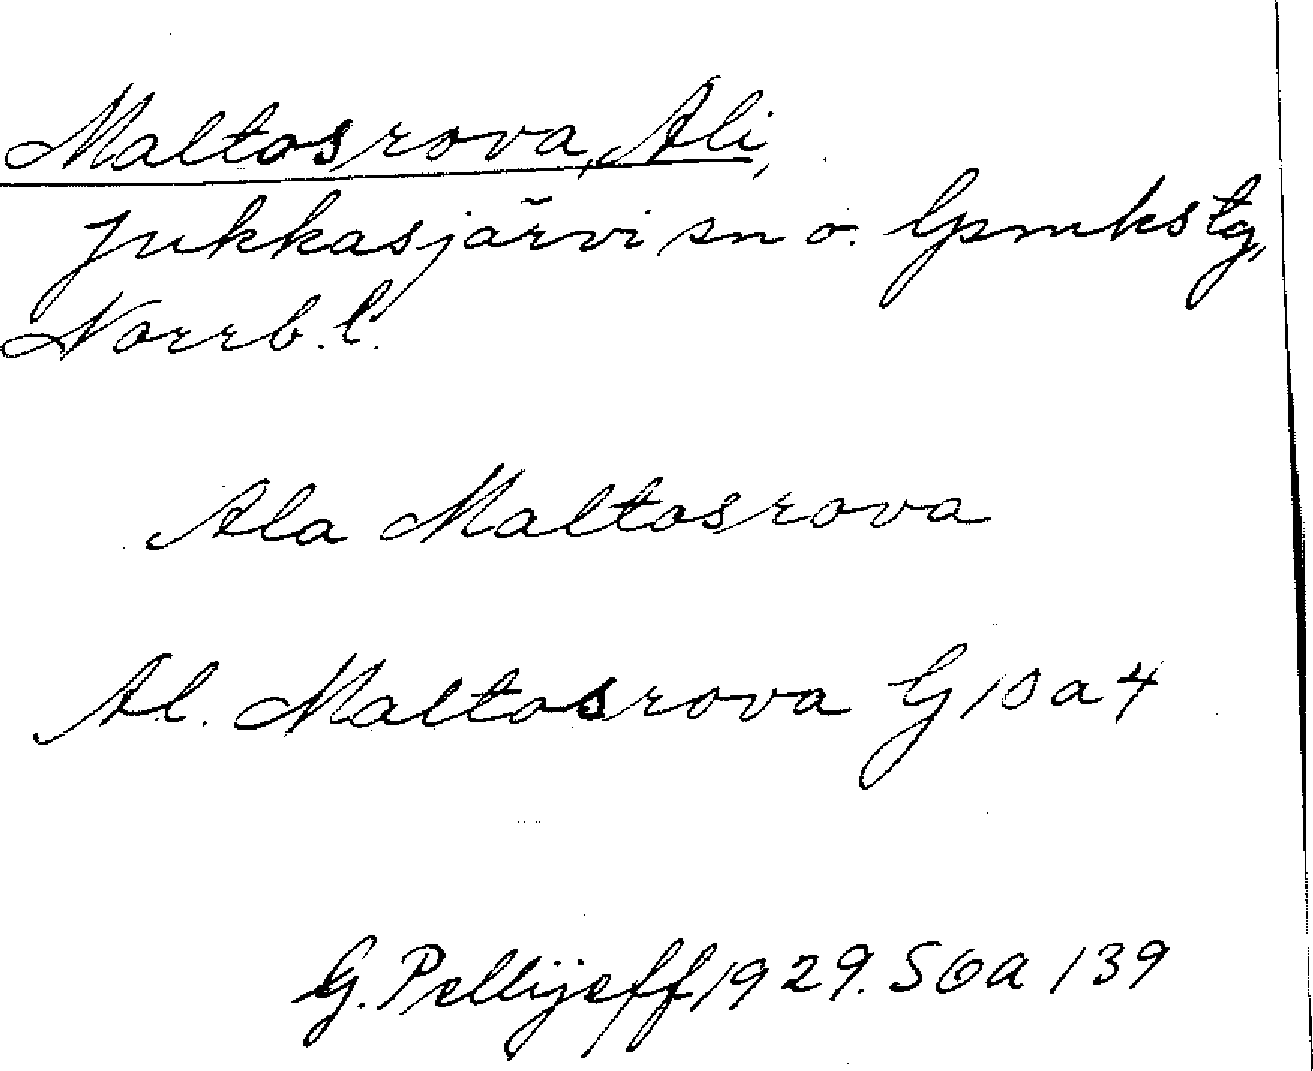 Maltosrova, Ali,
Jukkasjärvi sn o. lpmkstg,
Norrb. l.
Ala Maltosrova
Al. Maltosrova G 10 a 4
G. Pellijeff 1929. SOA 139